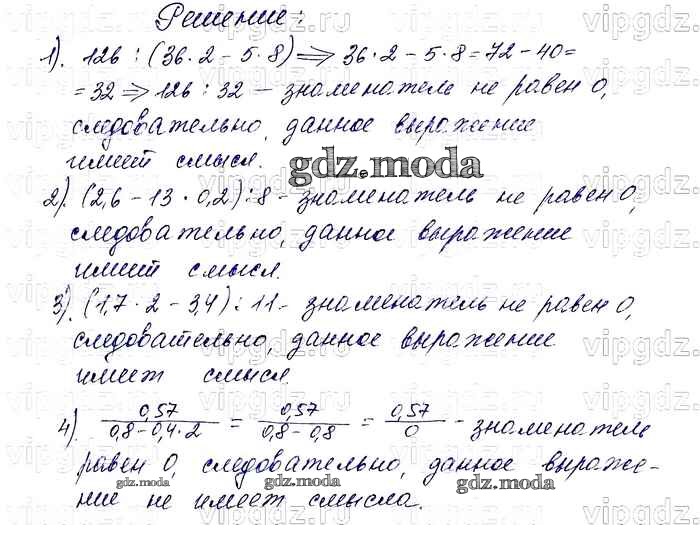 Решение:
1). 126 : (36·2 – 5·8) ⇒ 36·2 – 5·8 = 72 – 40 =
= 32 ⇒ 126 : 32 – знаменатель не равен 0,
следовательно, данное выражение
имеет смысл.
gdz.moda
2). (2,6 – 13·0,2) : 8 – знаменатель не равен 0,
следовательно, данное выражение
имеет смысл.
3). (1,7·2 – 3,4) : 11 – знаменатель не равен 0,
следовательно, данное выражение
имеет смысл.
4). 0,57/(0,8–0,4·2) = 0,57/(0,8–0,8) = 0,57/0 – знаменатель
равен 0, следовательно, данное выраже-
ние не имеет смысла.
gdz.moda
gdz.moda
gdz.moda
vipgdz.ru